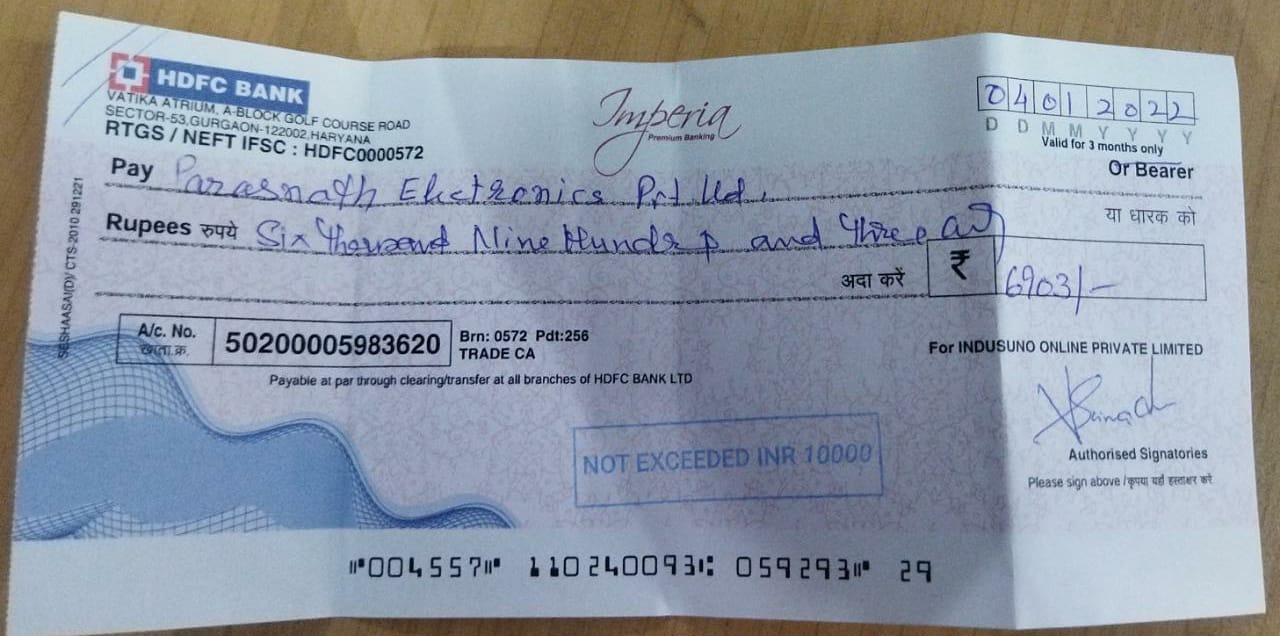 HDFC BANK
VATIKA ATRIUM, A-BLOCK GOLF COURSE ROAD
SECTOR-53,GURGAON-122002,HARYANA
RTGS / NEFT IFSC : HDFC0000572
Imperia
Premium Banking
04012022
D D M M Y Y Y Y
Valid for 3 months only
Pay Parasnath Electronics Pvt Ltd. Or Bearer
या धारक को
Rupees रुपये Six Thousand Nine Hundred and three
अदा करें ₹ 6903/-
SESHAASAI(D)/ CTS-2010 291221
A/c. No.
खाता.क्र.
50200005983620
Brn: 0572 Pdt:256
TRADE CA
Payable at par through clearing/transfer at all branches of HDFC BANK LTD
For INDUSUNO ONLINE PRIVATE LIMITED
NOT EXCEEDED INR 10000
Authorised Signatories
Please sign above /कृपया यहाँ हस्ताक्षर करें
⑈004557⑈ 110240093⑆ 059293⑈ 29